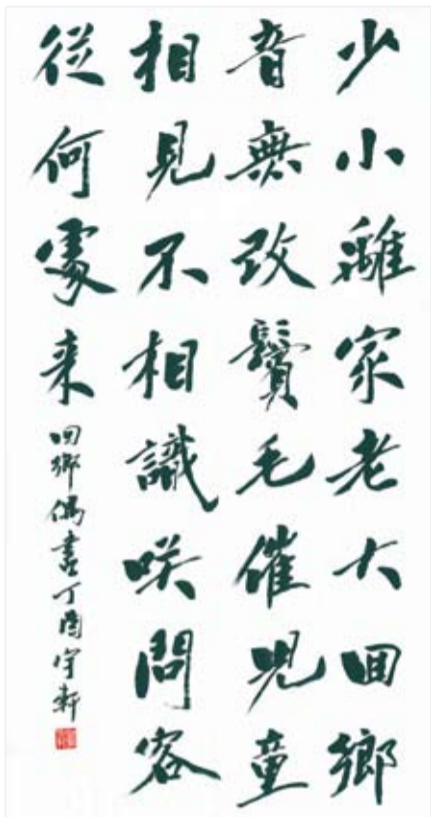 少小離家老大回鄉
音無改鬢毛催兒童
相見不相識咲問客
從何處来
回鄉偶書丁酉宇軒